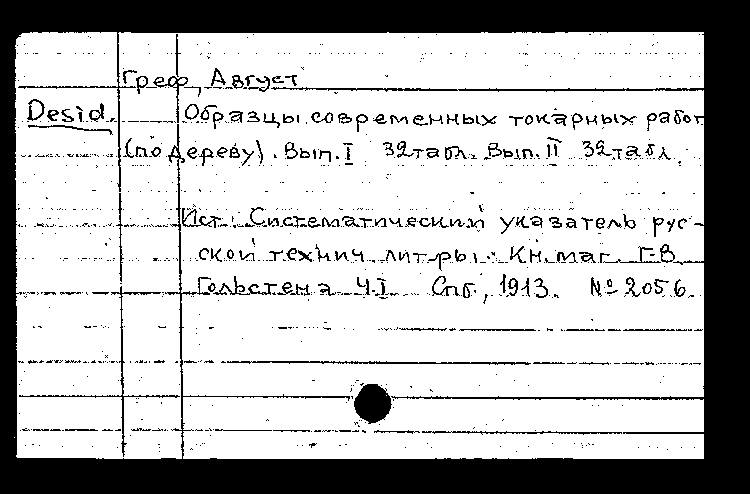 Греф, Август
Desid. Образцы современных токарных работ
(по дереву). Вып. I 32 табл. Вып. II 32 табл.
Ист.: Систематический указатель рус-
ской технич. лит-ры. Кн. маг. Г.В.
Гольстена Ч.I. Спб, 1913. № 2056.